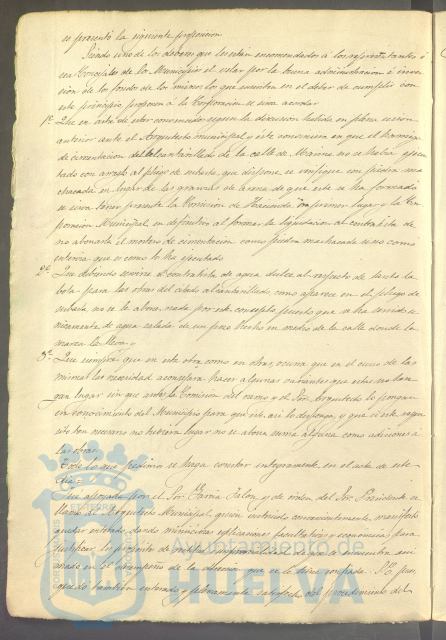 se presentó la siguiente proposición
Siendo uno de los deberes que les están encomendados á los representantes ó
sea Concejales de los Municipios el velar por la buena administración é inver
sión de los fondos de los mismos los que suscriben en el deber de cumplir con
este principio proponen á la Corporación se sirva acordar
1º Que en virtud de estar convencidos según la discusión habida en plena sesión
anterior ante el Arquitecto municipal y este convencido en que el hormigon
de cimentacion del alcantarillado de la calle de Marina no se halla ejecu
tado con arreglo al pliego de subasta, que dispone se verifique con piedra ma
chacada en lugar de las gravas de arena de que este se ha formado
se sirva tener presente la Comisión de Hacienda en primer lugar y la Cor
poración Municipal en definitiva al formar la liquidación al contratista de
no abonarle el metro de cimentación como piedra machacada sino como
se ha ejecutado
2º Que debiendo servirse el contratista de agua dulce al respecto de tanto la
bota para las obras del citado alcantarillado, como aparece en el pliego de
subasta no se le abone nada por este concepto puesto que se ha servido ú
nicamente de agua salada de un pozo hecho en medio de la calle donde la
marea la lleva y
3º Que siempre que en esta obra, como en otras, ocurra que en el curso de las
mismas la necesidad aconsejara hacer algunas variantes que estas no ten
gan lugar sin que antes la Comisión del ramo y el Sor. Arquitecto lo pongan
en conocimiento del Municipio para que este así lo disponga, y que si este requi
sito tan necesario no hubiera lugar no se abone suma alguna como adiciones á
las obras.
Todo lo que pedimos se haga constar íntegramente en el acta de este
dia=
Fue apoyada por el Sor. García Jalon y de orden del Sor. Presidente se
llama al Arquitecto Municipal, quien enterado convenientemente, manifestó
quedar enterado, dando minuciosas esplicaciones facultativas y economicas para
justificar los propósitos de rectitud é imparcialidad de que se encuentra ani
mado en el desempeño de la dirección que se le tiene confiada. S.E. que
quedó tambien enterado y plenamente satisfecho del procedimiento del
Ayuntamiento de
HUELVA